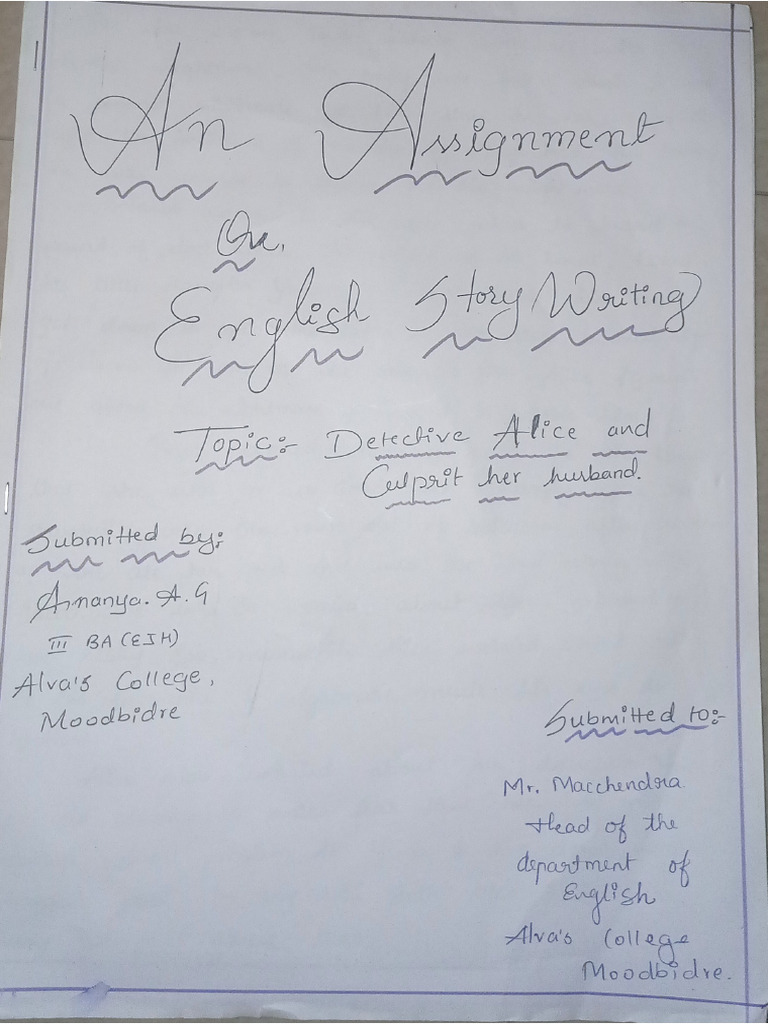 An Assignment
On,
English Story Writing
Topic:- Detective Alice and
Culprit her husband.
Submitted by:
Ananya. A. G
III BA (EJH)
Alva's College,
Moodbidre
Submitted to:-
Mr. Macchendra
Head of the
department of
English
Alva's College
Moodbidre.